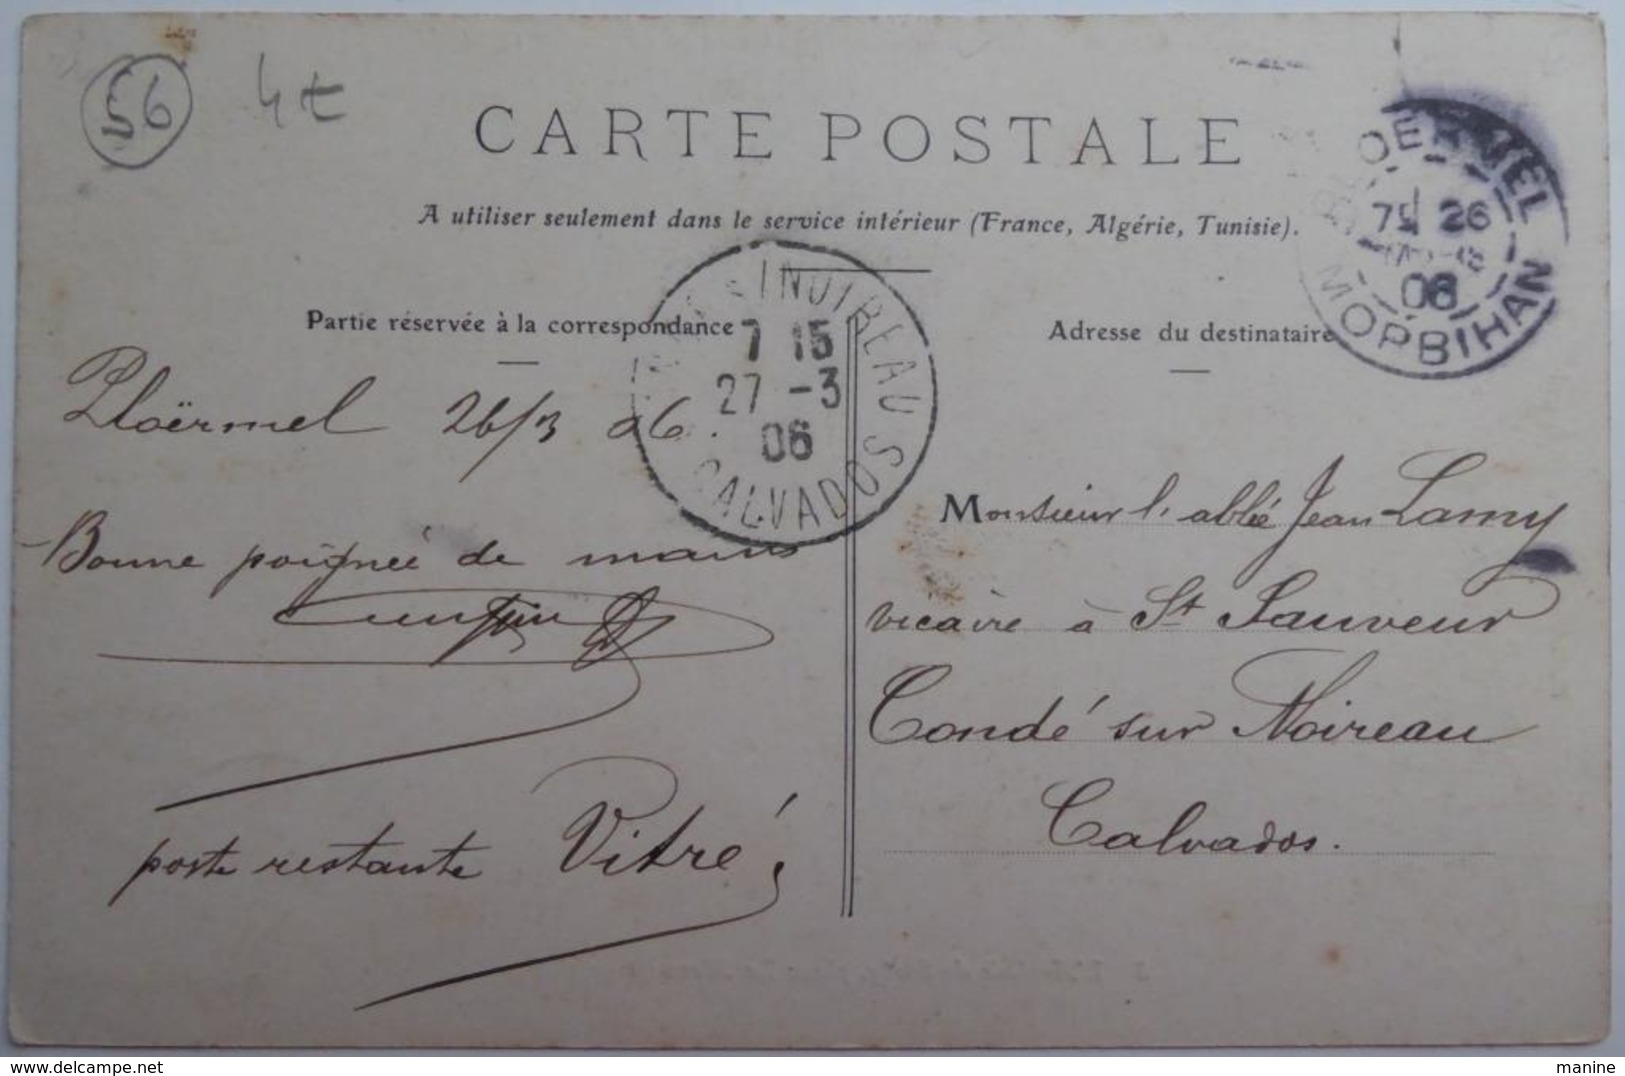 56 4t
CARTE POSTALE
A utiliser seulement dans le service intérieur (France, Algérie, Tunisie).
PLOERMEL
7E 26
06
MORBIHAN
Partie réservée à la correspondance
Adresse du destinataire
7 15
27 -3
06
CALVADOS
Ploërmel 26/3 06.
Bonne poignée de mains
poste restante Vitré,
Monsieur l'abbé Jean Lamy
vicaire à St Sauveur
Condé sur Noireau
Calvados.
manine